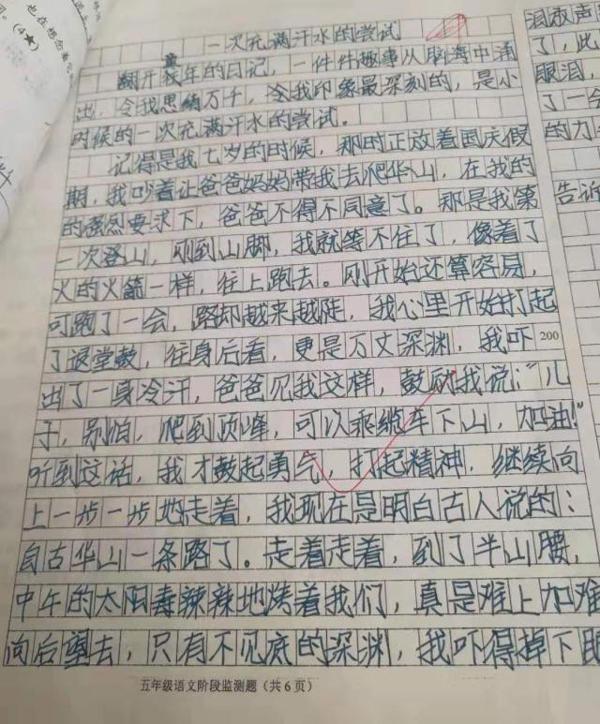 也在想念着
。(4★)
一次充满汗水的尝试
翻开童年的日记，一件件趣事从脑海中涌
出，令我思绪万千，令我印象最深刻的，是小
时候的一次充满汗水的尝试。
记得是我七岁的时候，那时正放着国庆假
期，我吵着让爸爸妈妈带我去爬华山，在我的
的强烈要求下，爸爸不得不同意了。那是我第
一次登山，刚到山脚，我就等不住了，像着了
火的火箭一样，往上跑去。刚开始还算容易，
可跑了一会，路却越来越陡，我心里开始打起
了退堂鼓，往身后看，更是万丈深渊，我吓
200
出了一身冷汗，爸爸见我这样，鼓励我说：“儿
子，别怕，爬到顶峰，可以乘缆车下山，加油！”
听到这话，我才鼓起勇气，打起精神，继续向
上一步一步地走着，我现在是明白古人说的：
自古华山一条路了。走着走着，到了半山腰，
中午的太阳毒辣辣地烤着我们，真是难上加难
向后望去，只有不见底的深渊，我吓得掉下眼
五年级语文阶段监测题（共6页）
泪放声
了，此
眼泪，
了一会
的力
告诉